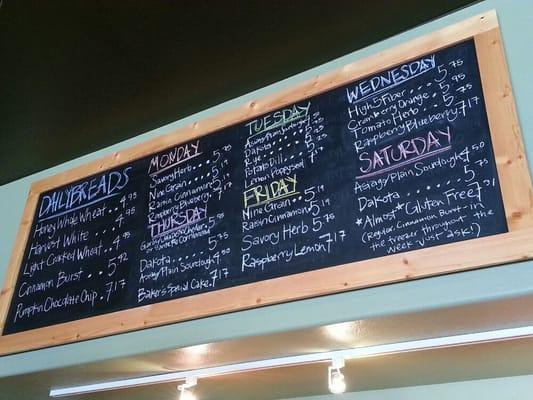 DAILY BREADS
Honey Whole Wheat .. 4.95
Harvest White ... 4.95
Light Cracked Wheat . 4.95
Cinnamon Burst ... 5.42
Pumpkin Chocolate Chip . 7.17
MONDAY
Savory Herb .... 5.75
Nine Grain ... 5.19
Raisin Cinnamon 5.19
Raspberry Blueberry. 7.17
THURSDAY
Dakota ... 5.75
Asiago/Plain Sourdough 4.50
Baker's Special Cake. 7.17
TUESDAY
Dakota
Rye
Potato Dill
Lemon Poppyseed
FRIDAY
Nine Grain .. 5.19
Raisin Cinnamon. 5.19
Savory Herb 5.75
Raspberry Lemon 7.17
WEDNESDAY
High 5 Fiber ... 5.95
Cranberry Orange . 5.75
Tomato Herb .... 5.75
Raspberry Blueberry. 7.17
SATURDAY
Asiago/Plain Sourdough 4.50
Dakota ... 5.75
*Almost* Gluten Free!
(Regular, Cinnamon Burst - in
the freezer throughout the
week just ask!)